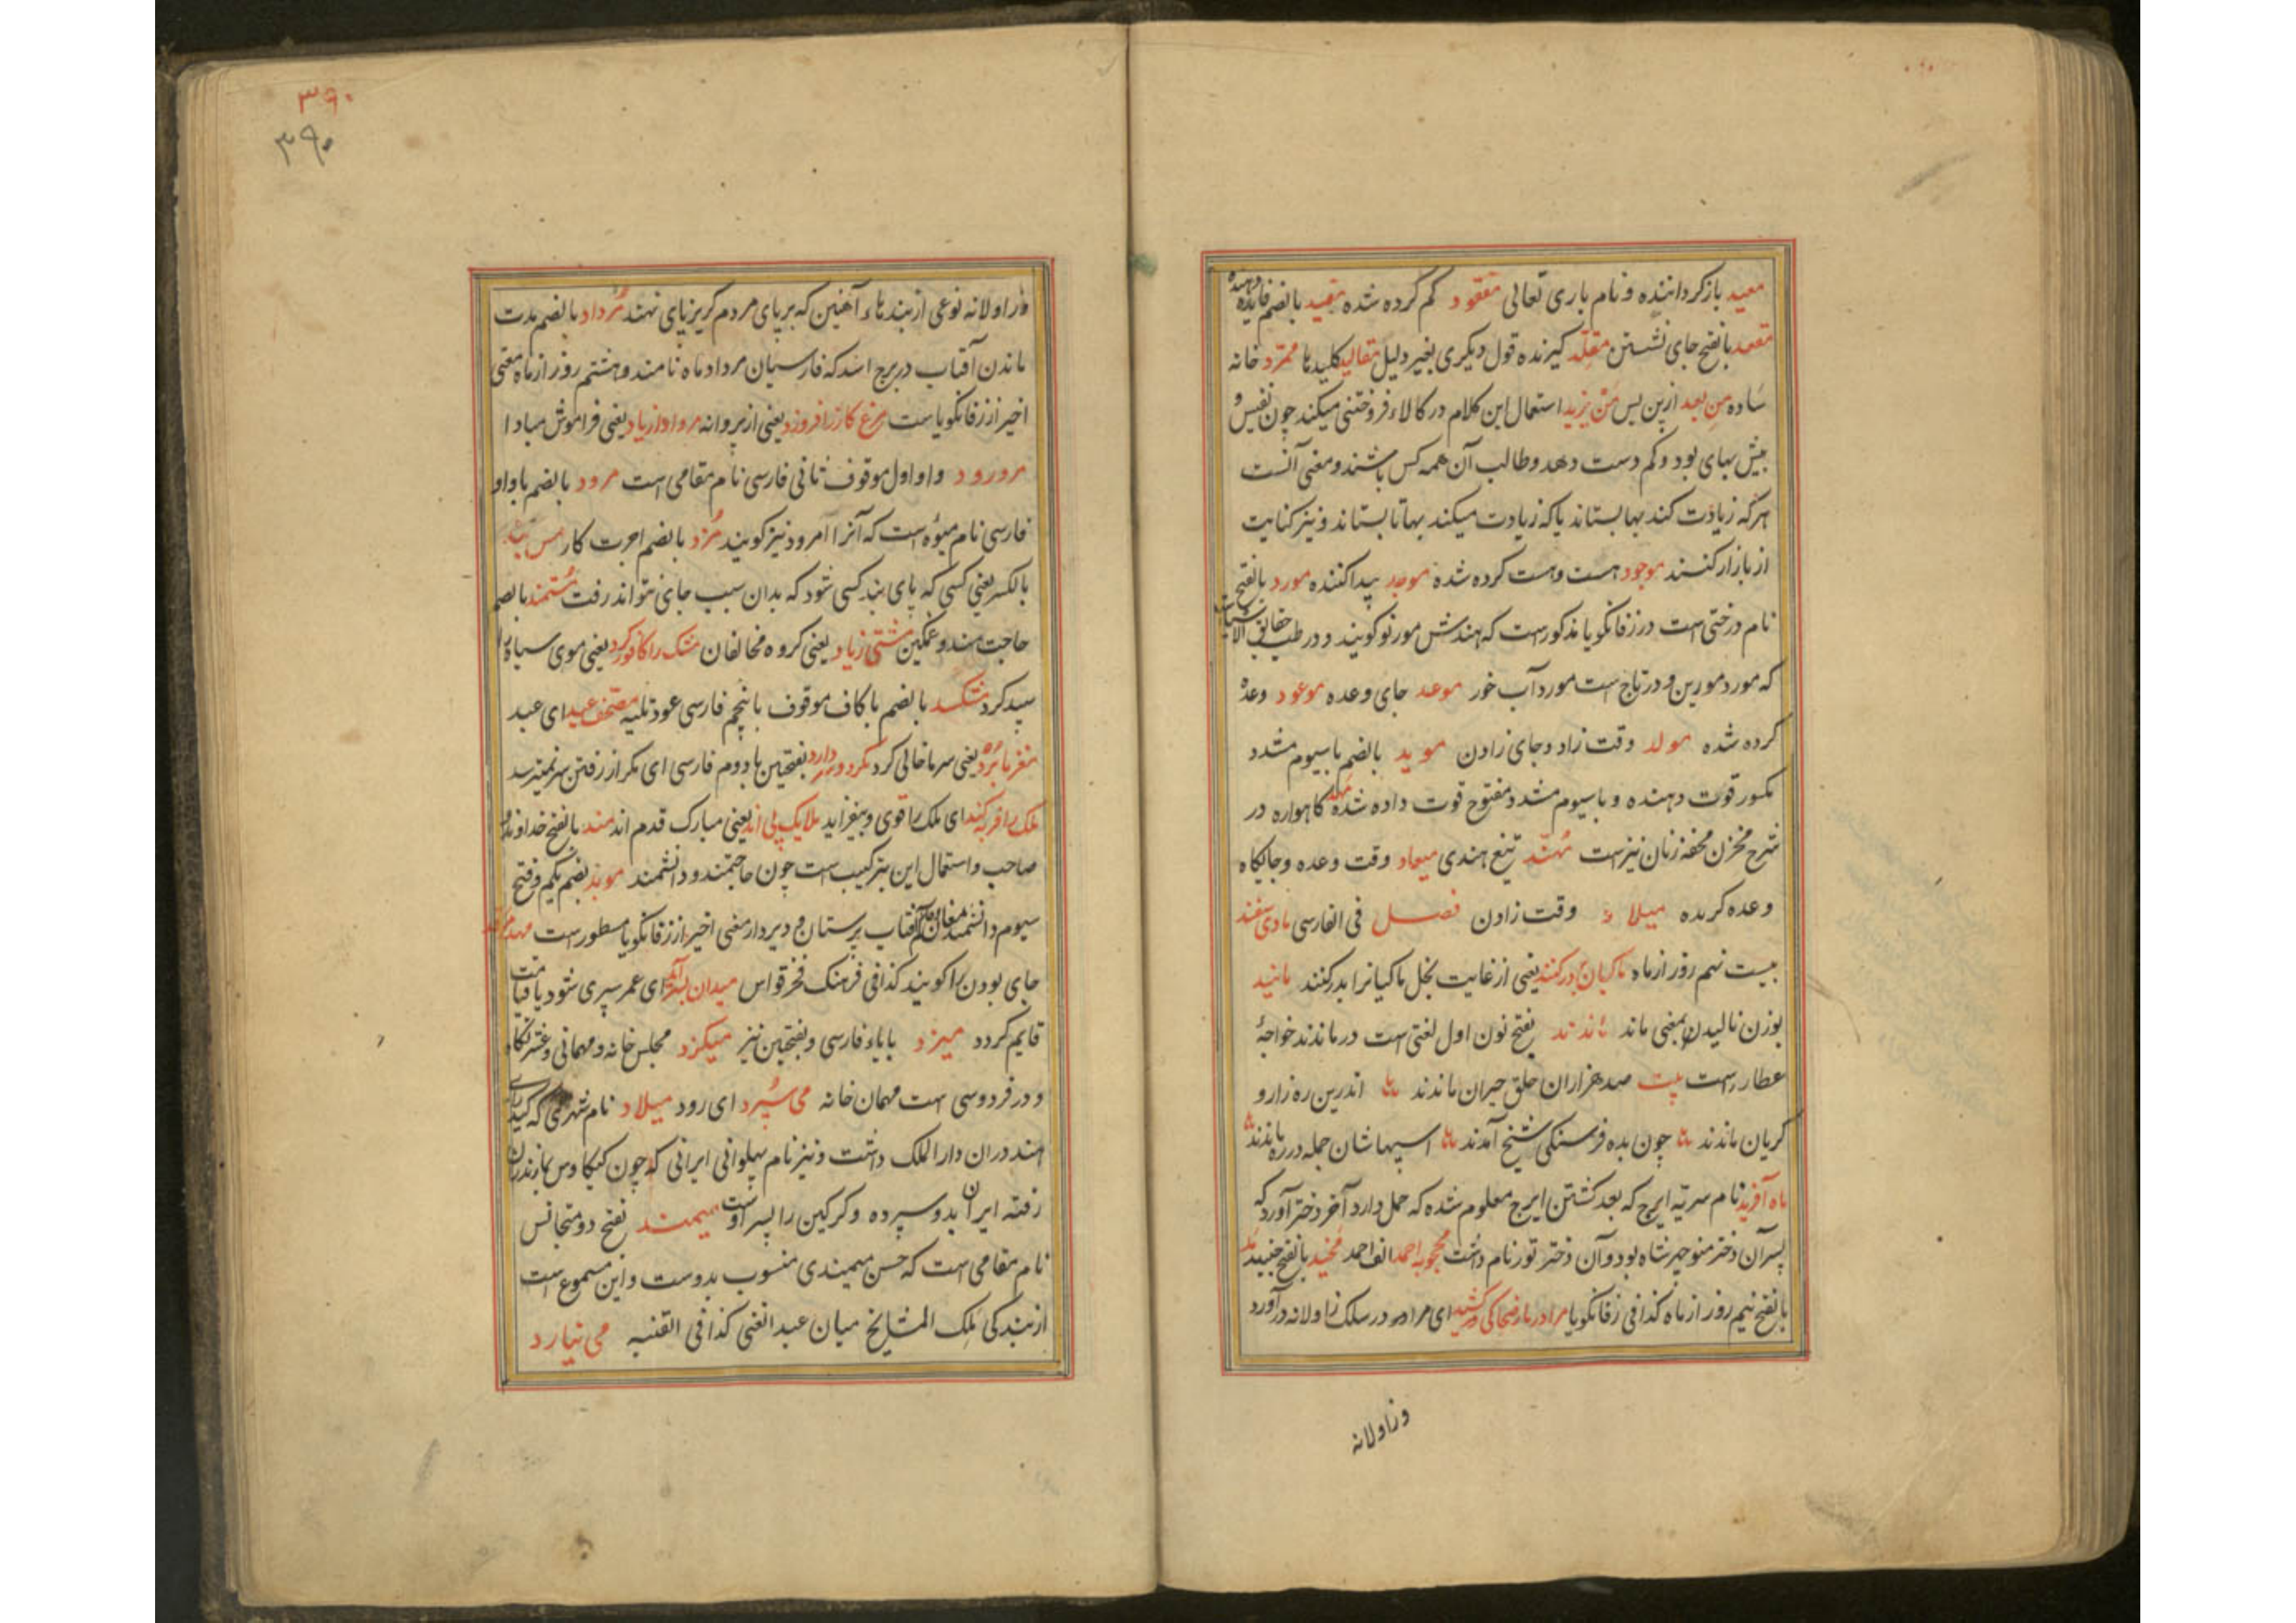 معید بازگرداننده و نام باری تعالی مفقود گم کرده شده مفید بالضم فایده دهنده
مقعد بالفتح جای نشستن مقلد گیرنده قول دیگری بغیر دلیل مقالید کلیدها ممرد خانه
ساده من بعد ازین پس من یزید استعمال این کلام در کالاء فروختنی میکند چون نفیس و
بیش بهای بود و کم دست دهد و طالب آن همه کس باشند و معنی آنست
هرکه زیادت کند بها بستاند یا که زیادت میکند بها تا بستاند و نیز کنایت
از بازار کنند موجود هست و هست کرده شده موجد پیدا کننده مورد بالفتح
نام درختی است در زفانگویا مذکورست که هندش مورتو گویند و در طب حقایق الاشیاست
که مورد مورین و در تاج است مورد آب خور موعد جای وعده موعود وعده
کرده شده مولد وقت زاد و جای زادن موید بالضم با سیوم مشدد
مکسور قوت دهنده و با سیوم مشدد مفتوح قوت داده شده مهد گاهواره در
شرح مخزن محفه زنان نیزست مهند تیغ هندی میعاد وقت وعده و جایگاه
وعده کرده میلاد وقت زادن فصل فی الفارسی
بیست نهم روز از ماه ماکیان بدر کنند یعنی از غایت بخل ماکیانرا بدر کنند مانید
بوزن نالیدن بمعنی ماند ماندند بفتح نون اول لغتی است در ماندند خواجهٔ
عطار راست بیت صد هزاران خلق حیران ماندند اندرین ره زار و
گریان ماندند چون بده فرسنگی شیخ آمدند اسپهاشان جمله در ره ماندند
ماه آفرید نام سریه ایرج که بعد کشتن ایرج معلوم شده که حمل دارد آخر دختر آورد که
پسر آن دختر منوچهر شاه بود و آن دختر تور نام داشت محجوبه احمد الف احمد مخید بالفتح جنبید
بالفتح نیم روز از ماه کذا فی زفانگویا مرا در مار ضحاک کشید ای مرا در سلک زاولانه درآورد
وزاولانه
۳۹۰
۳۹۰
وزاولانه نوعی از بندهاء آهنین که بر پای مردم گریزپای نهند مرداد بالضم مدت
ماندن آفتاب در برج اسد که فارسیان مرداد ماه نامند و هشتم روز از ماه معنی
اخیر از زفانگویاست مرغ کازر افروزد یعنی از پروانه مرواد از یاد یعنی فراموش مبادا
مرورود واو اول موقوف ثانی فارسی نام مقامی است مرود بالضم با واو
فارسی نام میوه است که آنرا امرود نیز گویند مزد بالضم اجرت کار
بالکسر یعنی کسی که پای بند کسی شود که بدان سبب جای نتواند رفت مستمند بالضم
حاجت مند و غمگین مشتی زیاد یعنی گروه مخالفان مشک را کافور کرد یعنی موی سیاه را
سپید کرد مشکسد بالضم با کاف موقوف با پنجم فارسی عود ثلثه ای عید
مغز ما برد یعنی سر ما خالی کرد مگر درد سر دارد بفتحتین با دوم فارسی ای مگر از رفتن سر نمیترسد
ملک را فربه کند ای ملک را قوی و بیفزاید ملایک پی اند یعنی مبارک قدم اند مند بالفتح خداوند و
صاحب و استعمال این بترکیب است چون حاجتمند و دانشمند موبد بضم یکم و فتح
سیوم دانشمند مغان حکیم آفتاب پرستان و دیردار معنی اخیر از زفانگویا مسطورست
جای بودن را گویند کذا فی فرهنگ فخر قواس میدان بسر آمد ای عمر سپری شود یا قیامت
قایم گردد میزد بایاء فارسی و بفتحتین نیز میگزد مجلس خانه و مهمانی و عشرتگاه
و در فردوسی است مهمان خانه می سپرد ای رود میلاد نام شهری که کید رای
هند دران دار الملک داشت و نیز نام پهلوانی ایرانی که چون کیکاوس بمازندران
رفته ایران بدو سپرده و گرگین را پسر اوست میمند بفتح دو متجانس
نام مقامی است که حسن میمندی منسوب بدوست و این مسموع است
از بندگی ملک المشایخ میان عبد الغنی کذا فی القنیه می نیارد